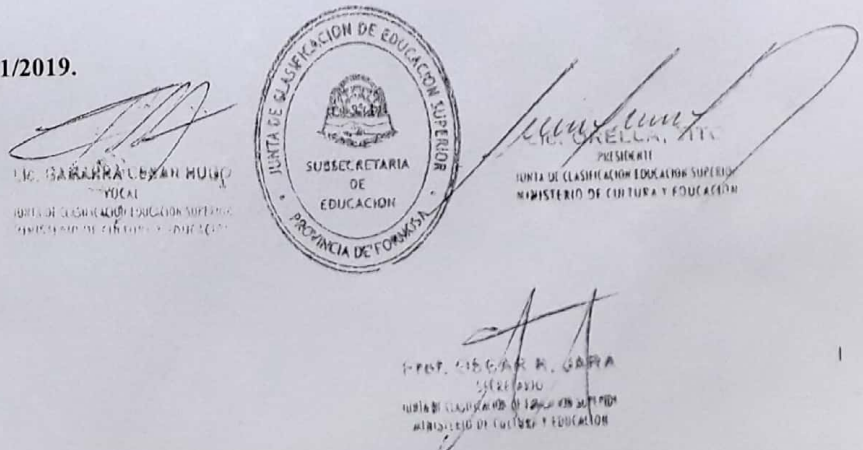 1/2019.
JUNTA DE CLASIFICACION DE EDUCACION SUPERIOR
SUBSECRETARIA
DE
EDUCACION
PROVINCIA DE FORMOSA
HUGO
VOCAL
JUNTA DE CLASIFICACION EDUCACION SUPERIOR
MINISTERIO DE CULTURA Y EDUCACION
PRESIDENTE
JUNTA DE CLASIFICACION EDUCACION SUPERIOR
MINISTERIO DE CULTURA Y EDUCACION
SECRETARIO
JUNTA DE CLASIFICACION DE EDUCACION SUPERIOR
MINISTERIO DE CULTURA Y EDUCACION